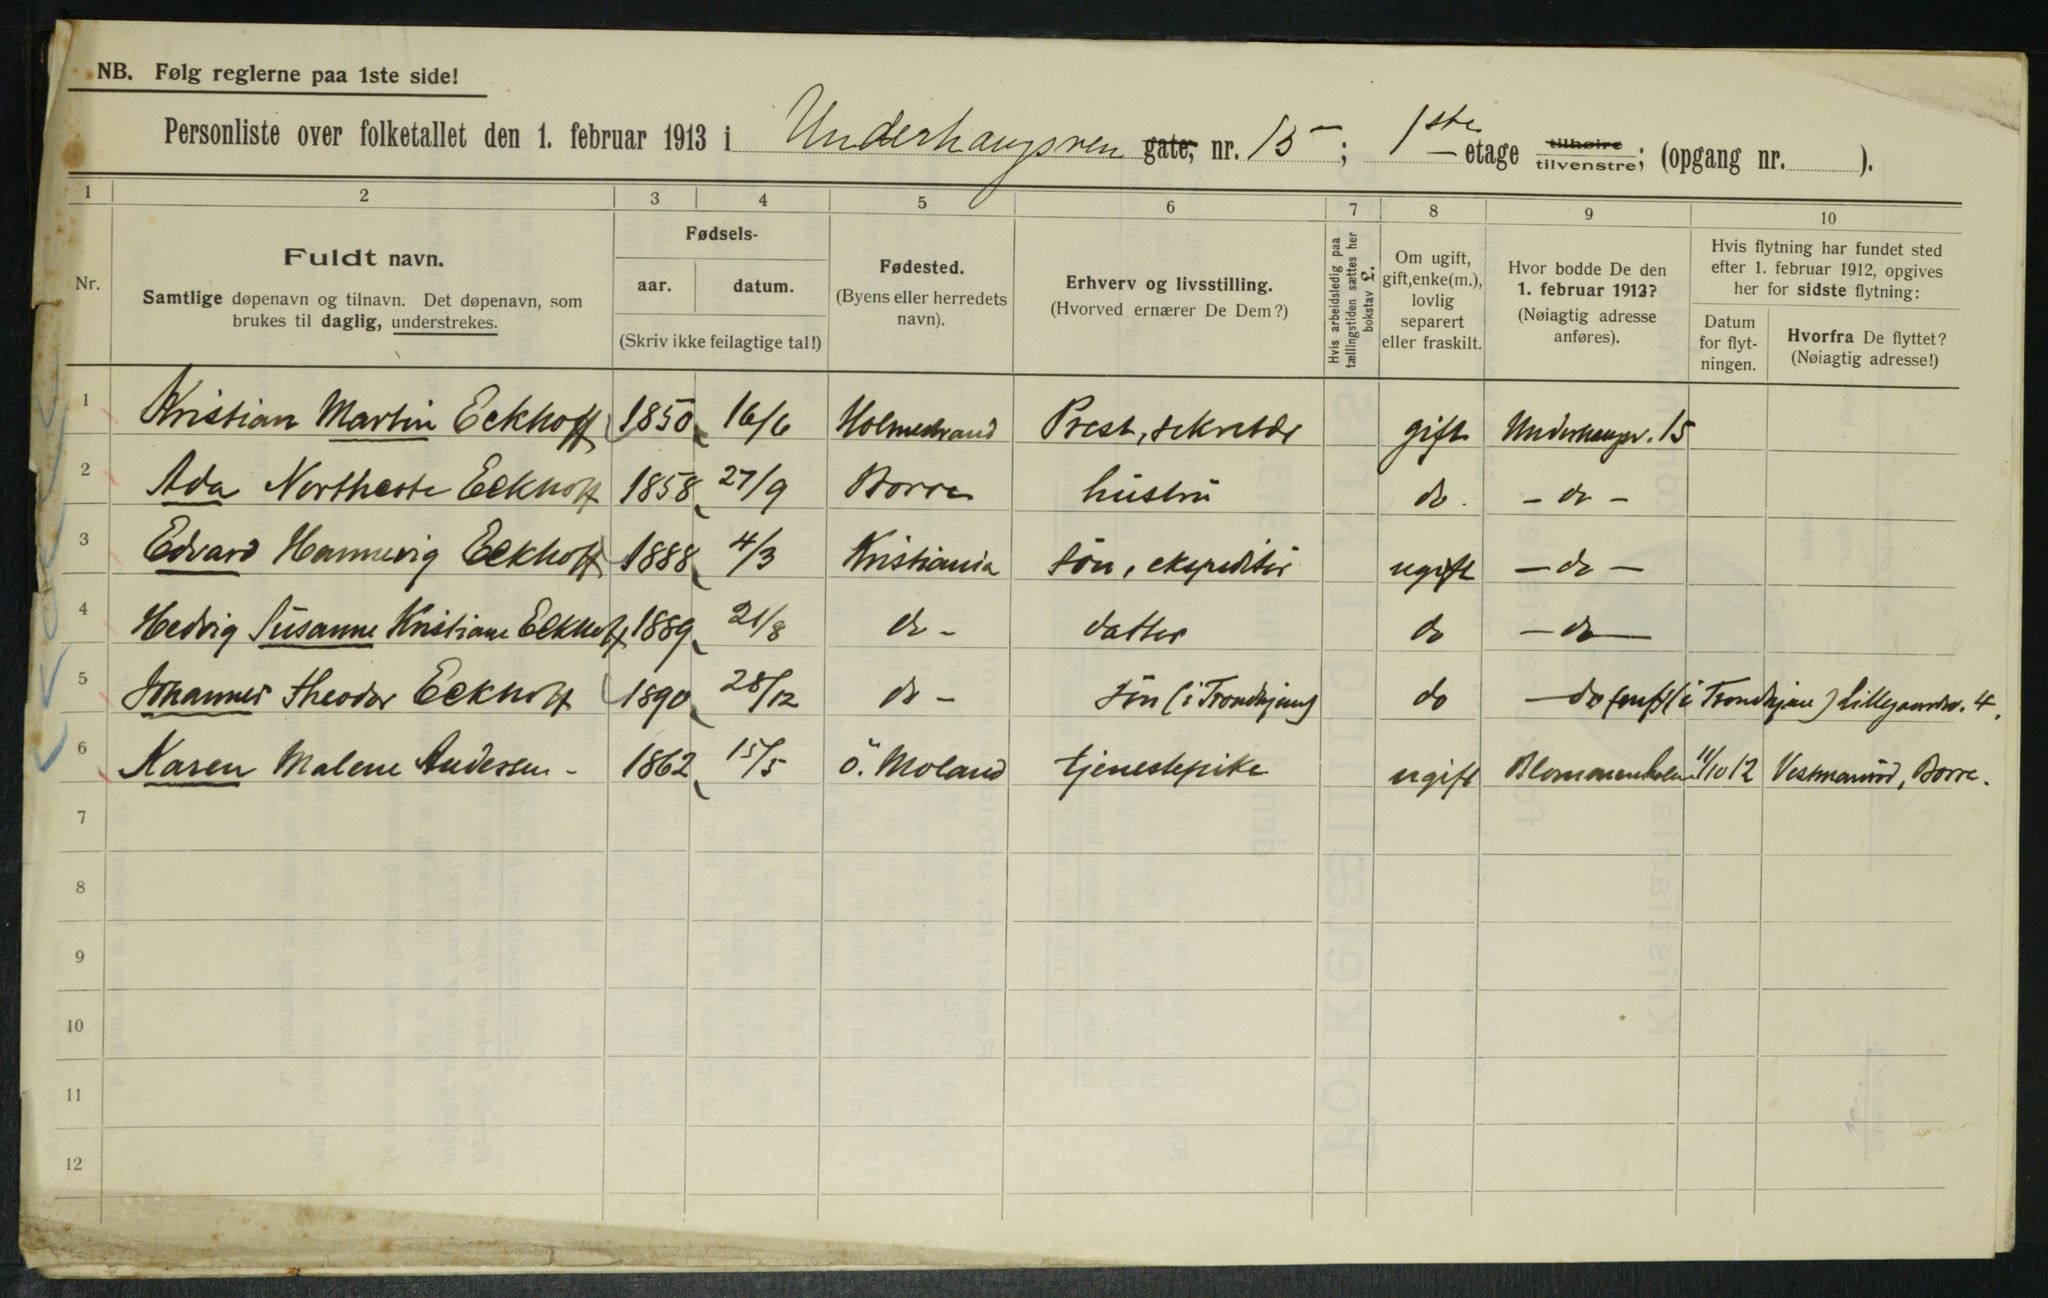 NB. Følg reglerne paa 1ste side!
Personliste over folketallet den 1. februar 1913 i Underhaugsven gate, nr. 15; 1ste etage tilhøire tilvenstre; (opgang nr. ).
1 2 3 4 5 6 7 8 9 10
Nr.
Fuldt navn.
Samtlige døpenavn og tilnavn. Det døpenavn, som
brukes til daglig, understrekes.
Fødsels-
aar. datum.
(Skriv ikke feilagtige tal!)
Fødested.
(Byens eller herredets
navn).
Erhverv og livsstilling.
(Hvorved ernærer De Dem?)
Hvis arbeidsledig paa
tællingstiden sættes her
bokstav £.
Om ugift,
gift, enke(m.),
lovlig
separert
eller fraskilt.
Hvor bodde De den
1. februar 1912?
(Nøiagtig adresse
anføres).
Hvis flytning har fundet sted
efter 1. februar 1912, opgives
her for sidste flytning:
Datum
for flyt-
ningen.
Hvorfra De flyttet?
(Nøiagtig adresse!)
1 Kristian Martin Eckhoff 1850 16/6 Holmestrand Prest, sekretær gift Underhaugsv. 15
2 Ada Northcote Eckhoff 1858 27/9 Borre hustru do. - do -
3 Edvard Hannevig Eckhoff 1888 4/3 Kristiania søn, ekspeditør ugift - do -
4 Hedvig Susanne Kristiane Eckhoff 1889 21/8 do - datter do - do -
5 Johannes Theodor Eckhoff 1890 28/12 do - søn (i Trondhjem) do - do (i Trondhjem) Lillegaardsv. 4.
6 Karen Malene Andersen - 1862 15/5 Ö. Moland tjenestepike ugift Blommenholm 11/10 12 Vestmanrød, Borre.
7
8
9
10
11
12